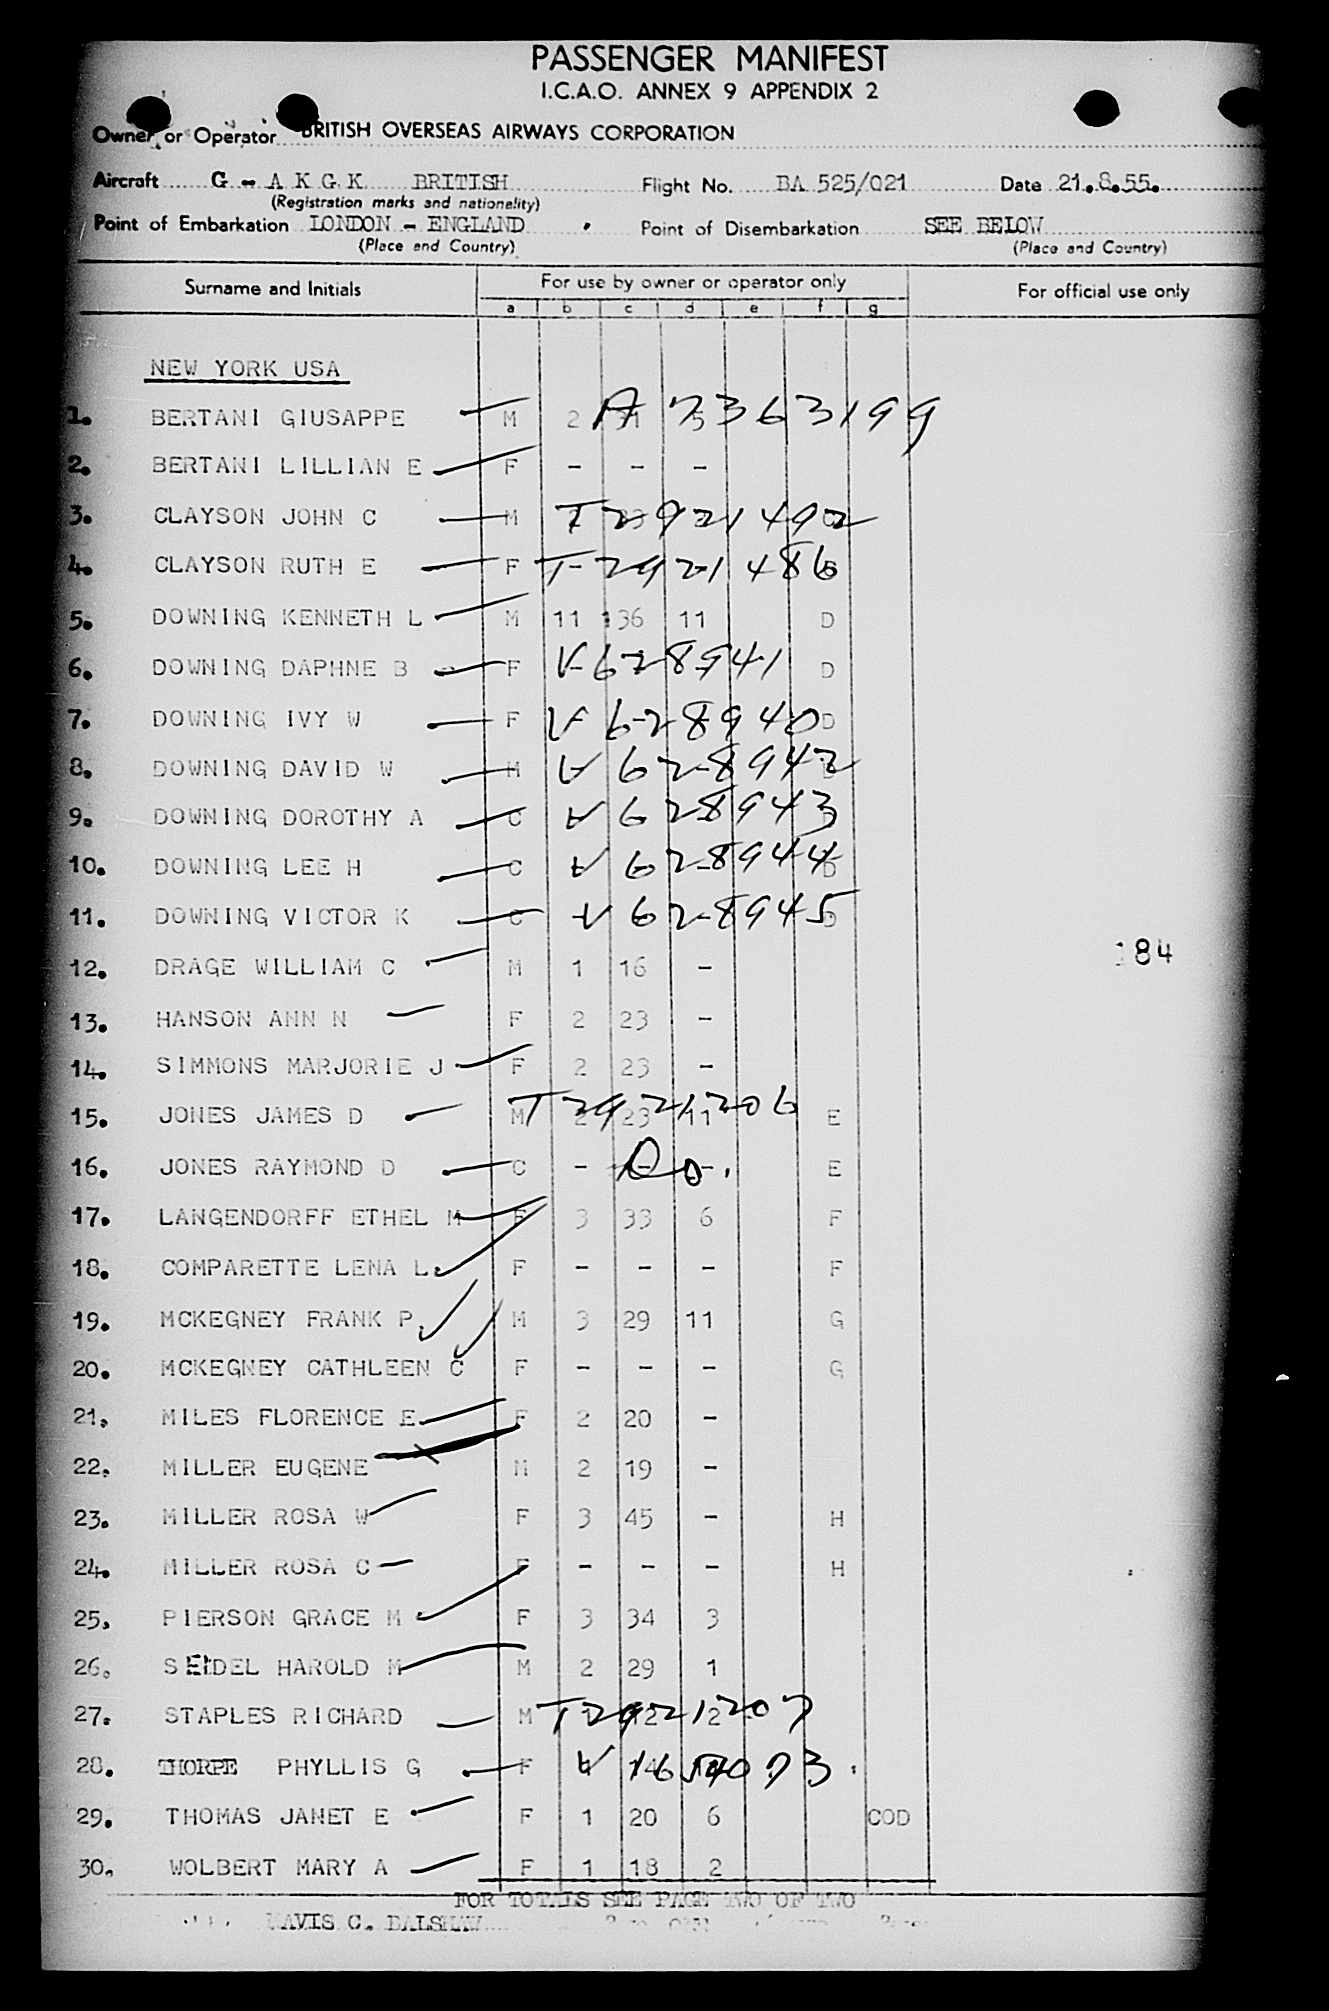 PASSENGER MANIFEST
I.C.A.O. ANNEX 9 APPENDIX 2
Owner or Operator BRITISH OVERSEAS AIRWAYS CORPORATION
Aircraft G - A K G K BRITISH Flight No. BA 525/021 Date 21.8.55.
(Registration marks and nationality)
Point of Embarkation LONDON - ENGLAND Point of Disembarkation SEE BELOW
(Place and Country) (Place and Country)
Surname and Initials For use by owner or operator only For official use only
a b c d e f g
NEW YORK USA
1. BERTANI GIUSAPPE M 2 A 7363199
2. BERTANI LILLIAN E F - - -
3. CLAYSON JOHN C M T 2921492
4. CLAYSON RUTH E F T-2921486
5. DOWNING KENNETH L M 11 136 11 D
6. DOWNING DAPHNE B F V-628941 D
7. DOWNING IVY W F V 628940 D
8. DOWNING DAVID W M V 628942 D
9. DOWNING DOROTHY A C V 628943
10. DOWNING LEE H C V 628944 D
11. DOWNING VICTOR K C V 628945 D
184
12. DRAGE WILLIAM C M 1 16 -
13. HANSON ANN N F 2 23 -
14. SIMMONS MARJORIE J F 2 23 -
15. JONES JAMES D M 2 23 11 T2921206 E
16. JONES RAYMOND D C - - - Do. E
17. LANGENDORFF ETHEL M F 3 33 6 F
18. COMPARETTE LENA L. F - - - F
19. MCKEGNEY FRANK P. M 3 29 11 G
20. MCKEGNEY CATHLEEN C F - - - G
21. MILES FLORENCE E F 2 20 -
22. MILLER EUGENE M 2 19 -
23. MILLER ROSA W F 3 45 - H
24. MILLER ROSA C F - - - H
25. PIERSON GRACE M F 3 34 3
26. SEIDEL HAROLD M M 2 29 1
27. STAPLES RICHARD M T2921207
28. THORPE PHYLLIS G F V 1654073
29. THOMAS JANET E F 1 20 6 COD
30. WOLBERT MARY A F 1 18 2
FOR TOTALS SEE PAGE TWO OF TWO
MAVIS C. BALSHAW